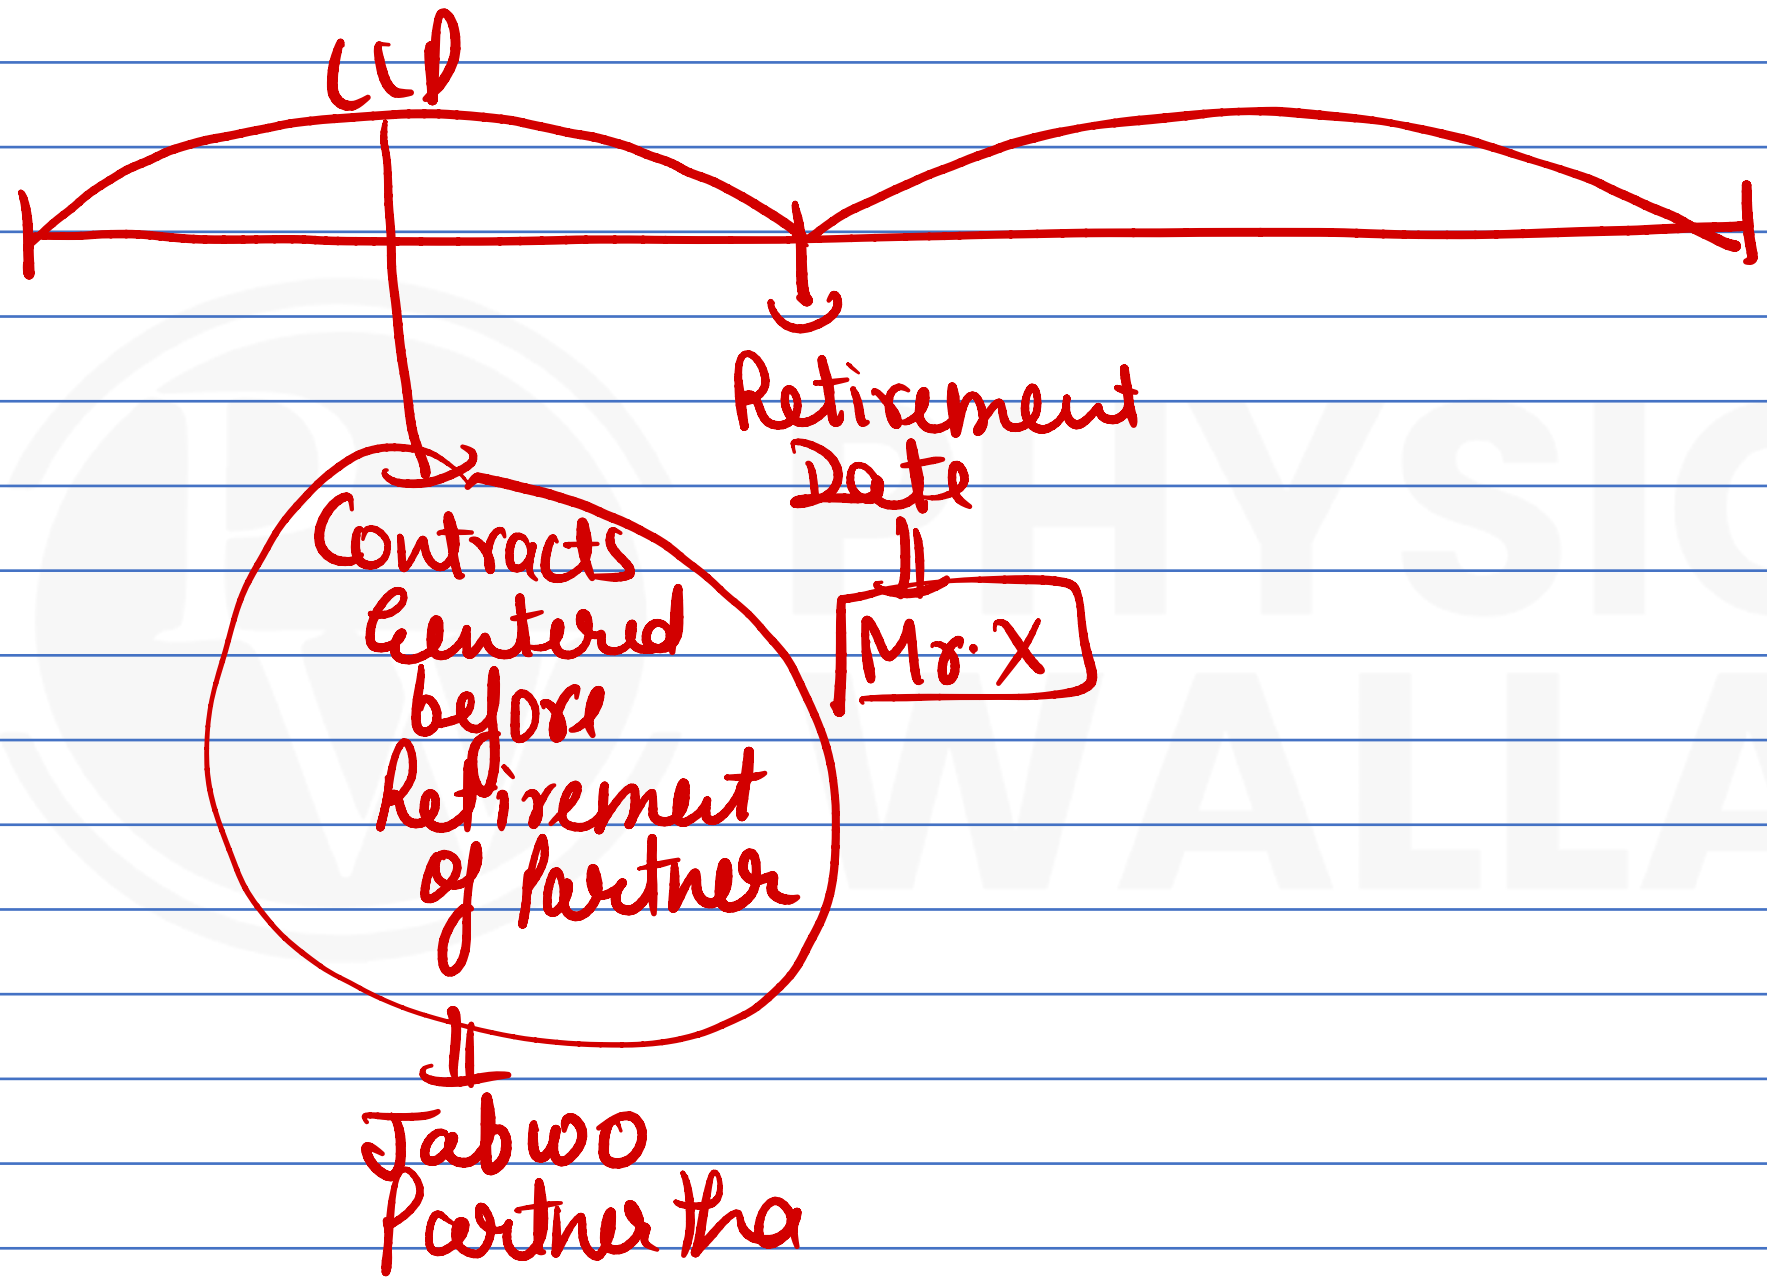 LLP
Retirement
Date
Mr. X
Contracts
Eentered
before
Retirement
of Partner
Jab wo
Partner tha
PHYSIC
WALLA